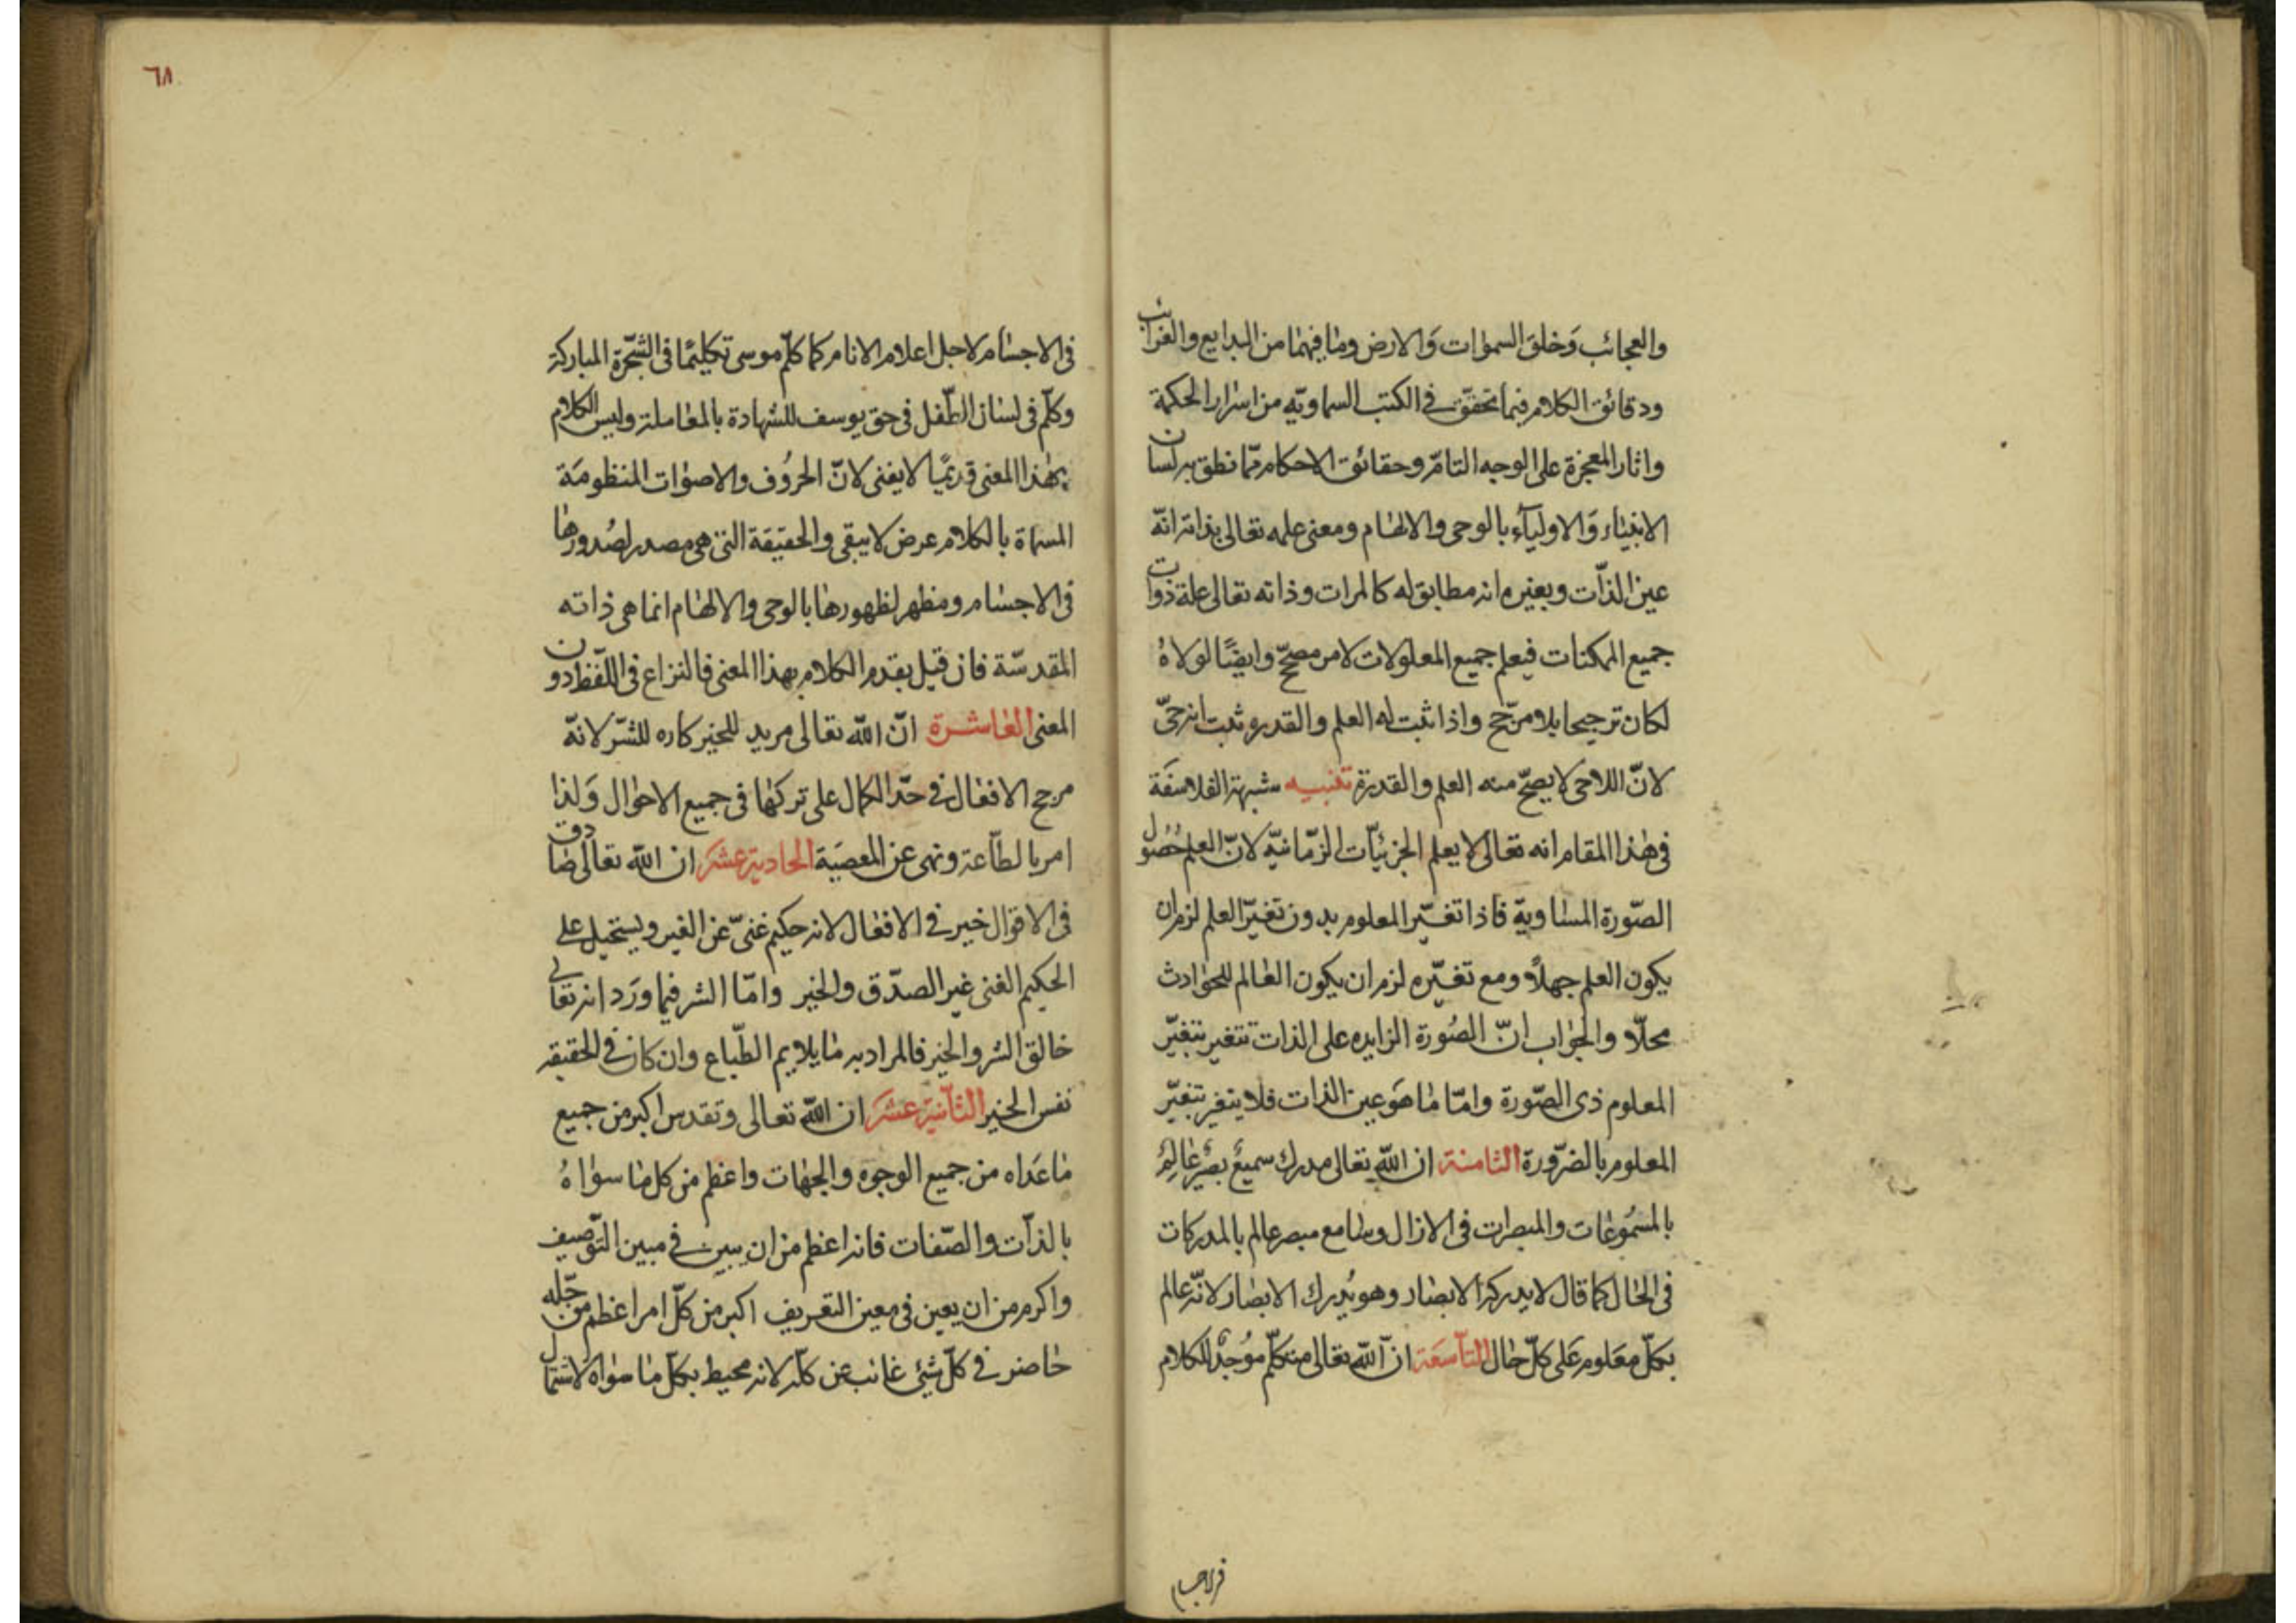 والعجائب وَخلق السمٰوات وَالارض ومٰا فيهمٰا من البدايع والغرائب
ودقائق الكلام فيمٰا تحقق فى الكتب السماويّه من اسرار الحكمة
واثار المعجزة على الوجه التامّ وحقائق الاحكام ممّا نطق به لسان
الانبيٰاء وَالاوليٰآء بالوحى والالهٰام ومعنى علمه تعالى بذاته انّه
عين الذّات وبغيره انه مطابق له كالمرات وذاته تعالى علة ذوات
جميع الممكنات فيعلم جميع المعلولات لامر مصحّح وايضًا لولاهُ
لكان ترجيحا بلا مرّجح واذا ثبت له العلم والقدره ثبت انه حىّ
لانّ اللاحى لا يصحّ منه العلم والقدرة تنبيه شبهة الفلاسفَة
فى هٰذا المقام انه تعالى لا يعلم الجزئيّات الزّمانيّه لانّ العلم حُصُول
الصّورة المسٰاوية فاذا تغيّر المعلوم بدون تغيّر العلم لزم ان
يكون العلم جهلًا ومع تغيّره لزم ان يكون العٰالم للحوٰادث
محلّا والجوٰاب انّ الصُورة الزايده على الذات تتغير بتغيّر
المعلوم ذى الصّورة وامّا مٰا هوَ عين الذات فلا يتغير بتغيّر
المعلوم بالضّرورة الثامنة ان اللّه تعالى مدرك سميعٌ بصيرٌ عٰالِمٌ
بالمسمُوعٰات والمبصرات فى الازال وسٰامع مبصر عالم بالمدركات
فى الحٰال كما قال لا يدركه الابصٰار وهو يُدرك الابصٰار لانّه عالم
بكلّ معَلوم عَلى كلّ حٰال التّاسَعة انّ اللّه تعالى متكلّم مُوجِدٌ للكلام
فى الاجسام
٦٨
فى الاجسٰام لاجل اعلام الانام كما كلّم موسى تكليمًا فى الشّجرة المباركة
وكلّم فى لسٰان الطّفل فى حق يوسف للشهادة بالمعٰاملة وليس الكلام
بهٰذا المعنى قديمًا لا يفنى لانّ الحروُف والاصوٰات المنظومَة
المسماة بالكلام عرض لا يبقى والحقيقَة التى هى مصدر لصُدورهٰا
فى الاجسٰام ومظهر لظهورهٰا بالوحى والالهٰام انما هى ذاته
المقدسّة فان قيل بقدم الكلام بهذا المعنى فالنزاع فى اللّفظ دون
المعنى العٰاشرة انّ اللّه تعالى مريد للخير كاره للشّر لانّه
مرجح الافعٰال فى حدّ الكمال على تركهٰا فى جميع الاحوٰال وَلذٰا
امر بالطّاعة ونهى عن المعصيَة الحادية عشرَ ان اللّه تعالى صٰادق
فى الاقوٰال خير فى الافعٰال لانه حكيم غنىّ عن الغير ويستحيل على
الحكيم الغنى غير الصدّق والخير وامّا الشر فيما ورَد انه تعٰالى
خالق الشر والخير فالمراد به مٰا يلايم الطّباع وان كان فى الحقيقه
نفس الخير الثّانية عشرَ ان اللّه تعالى وتقدس اكبر من جميع
مٰا عَداه من جميع الوجوه والجهٰات واعظم من كل مٰا سوٰاهُ
بالذّات والصّفات فانه اعظم من ان يبين فى مبين التّوصيف
واكرم من ان يعين فى معين التعريف اكبر من كلّ امر اعظم من جلّه
حٰاضر فى كلّ شئى غائب عن كلّه لانه محيط بكلّ مٰا سوٰاه لاشتمال